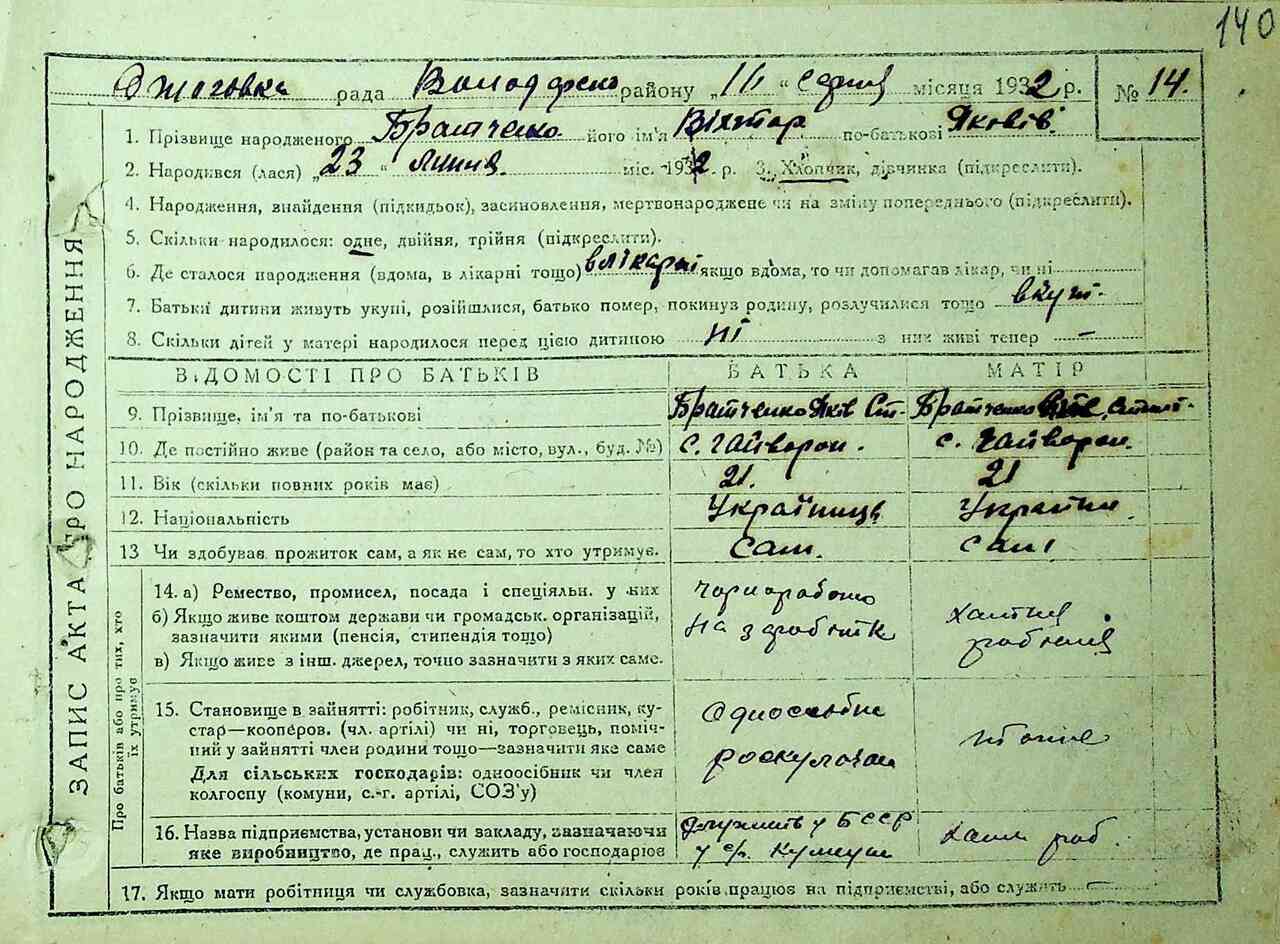 140
рада района „11“ серпня місяця 1932 р. № 14.
1. Прізвище народженого Братченко його ім'я Віктор по-батькові Яковів
2. Народився (лася) „23“ липня міс. 1932 р. 3. Хлопчик, дівчинка (підкреслити).
4. Народження, знайдення (підкидьок), засиновлення, мертвонароджене чи на зміну попереднього (підкреслити).
5. Скільки народилося: одне, двійня, трійня (підкреслити).
6. Де сталося народження (вдома, в лікарні тощо) в лікарні якщо вдома, то чи допомагав лікар, чи ні
7. Батьки дитини живуть укупі, розійшлися, батько помер, покинув родину, розлучилися тощо вкупі.
8. Скільки дітей у матері народилося перед цією дитиною ні з них живі тепер —
ЗАПИС АКТА ПРО НАРОДЖЕННЯ
ВІДОМОСТІ ПРО БАТЬКІВ БАТЬКА МАТІР
9. Прізвище, ім'я та по-батькові Братченко Яків Ст- Братченко
10. Де постійно живе (район та село, або місто, вул., буд. №) с. Гайворон. с. Гайворон.
11. Вік (скільки повних років має) 21. 21
12. Національність Українець Українк
13 Чи здобував прожиток сам, а як не сам, то хто утримує. Сам. самі
Про батьків або про тих, хто їх утримує
14. а) Ремество, промисел, посада і спеціяльн. у них чорноробоч
б) Якщо живе коштом держави чи громадськ. організацій, на заробітк хатня
зазначити якими (пенсія, стипендія тощо) робітниця
в) Якщо живе з інш. джерел, точно зазначити з яких саме.
15. Становище в зайнятті: робітник, служб., ремісник, ку- Одноосібник
стар—кооперов. (чл. артілі) чи ні, торговець, поміч-
ний у зайнятті член родини тощо—зазначити яке саме тоже
Для сільських господарів: одноосібник чи член роскулачен
колгоспу (комуни, с.-г. артілі, СОЗ'у)
16. Назва підприємства, установи чи закладу, зазначаючи у БССР
яке виробництво, де прац., служить або господарює хатн роб.
17. Якщо мати робітниця чи службовка, зазначити скільки років працює на підприємстві, або служить —